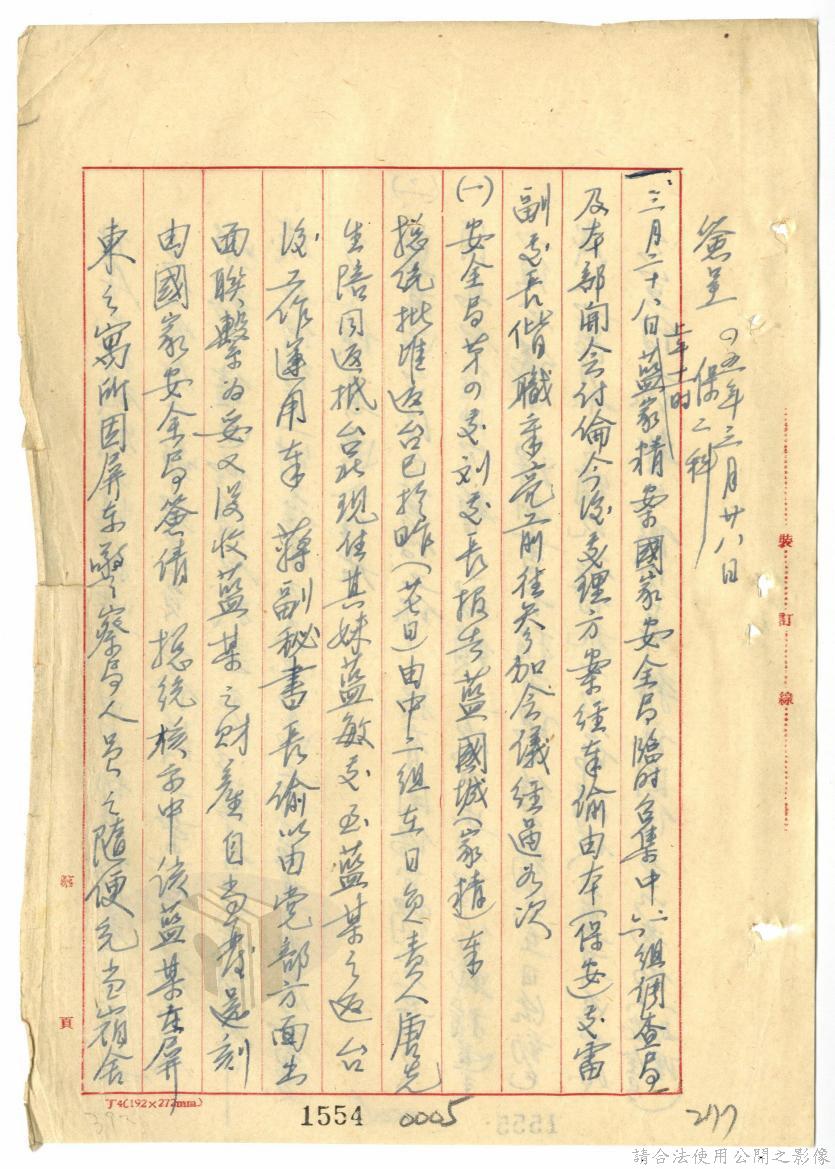 簽呈 四五年三月廿八日
保二科
一、三月二十八日上午十一時藍家精案國家安全局臨時召集中二、六組調查局
及本部開會討論今後處理方案經奉諭由本(保安)處雷
副處長偕職章亮前往參加會議經過如次
(一)安全局第四處刘處長報告藍國城(家精)奉
總統批准返台已於昨(廿七日)由中二組在日負責人唐先
生陪同返抵台北現住其妹藍敏處至藍某之返台
後工作運用奉 蔣副秘書長諭以由党部方面出
面聯繫為妥又沒收藍某之財產自當發還刻
由國家安全局簽請 總統核示中該藍某在屏
東之寓所因屏東警察局人員之隨便充当宿舍
裝訂線
第 頁
丁4(192×272mm.)
1554
0005
277
請合法使用公開之影像